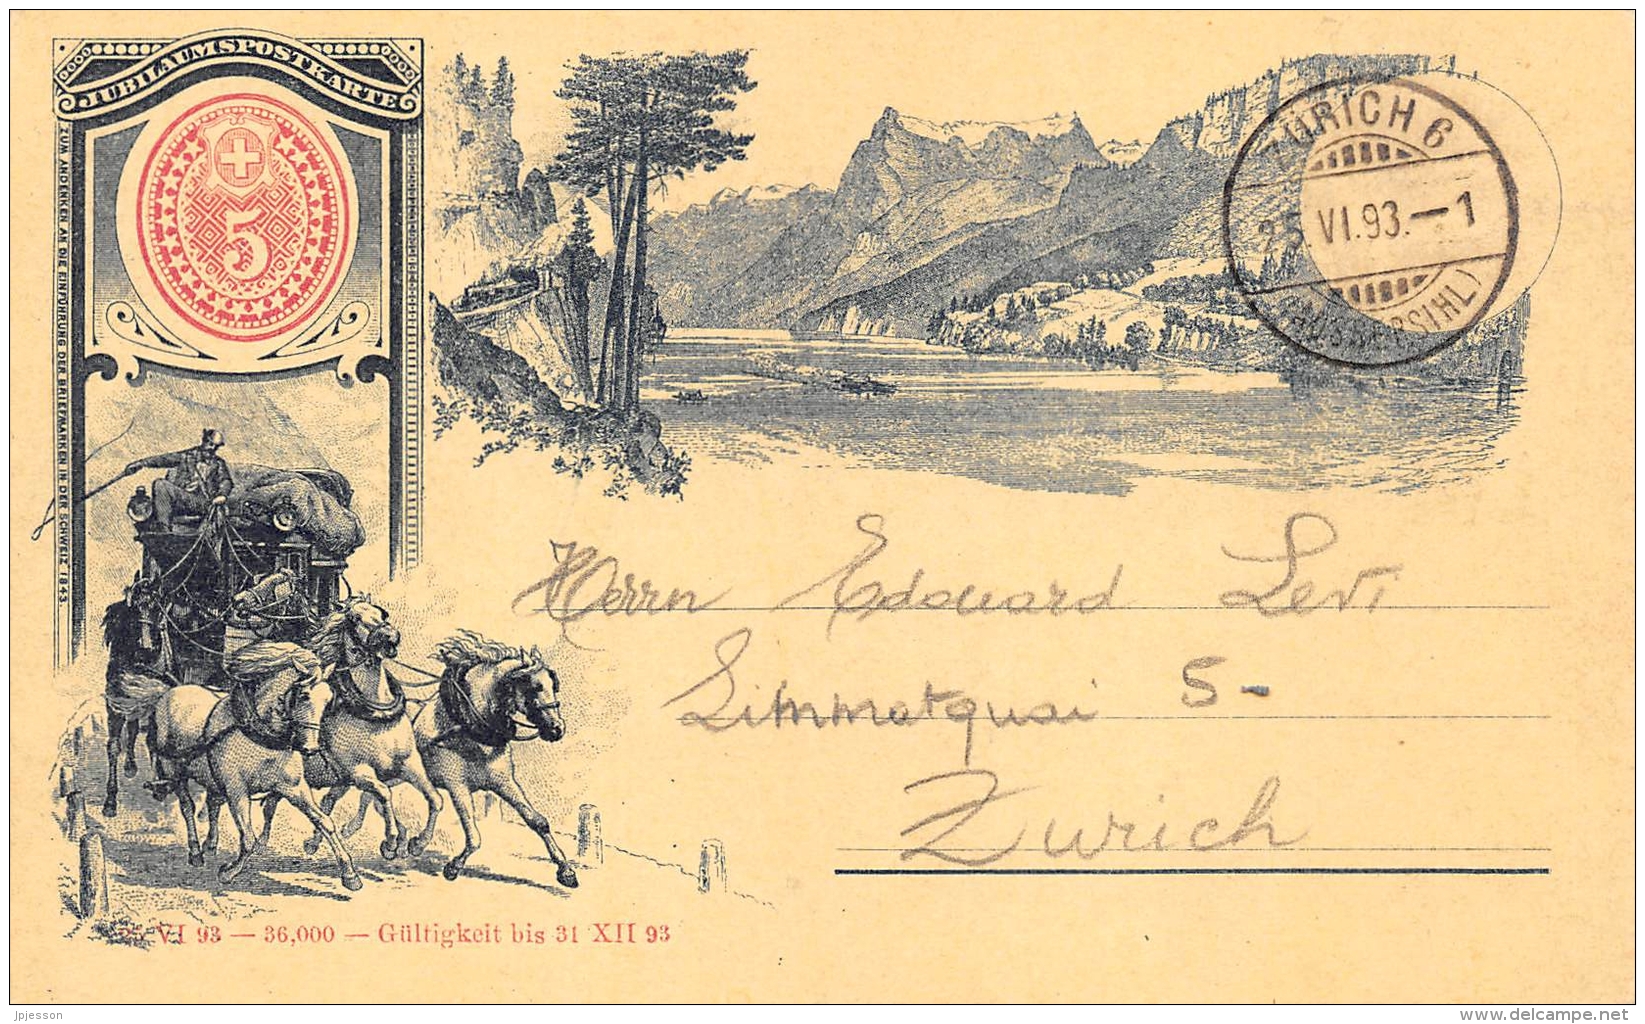 JUBILÄUMSPOSTKARTE
5
ZUM ANDENKEN AN DIE EINFÜHRUNG DER BRIEFMARKEN IN DER SCHWEIZ 1843
ZÜRICH 6
25.VI.93.—1
(AUSSERSIHL)
Herrn Edouard Levi
Limmatquai 5-
Zurich
25 VI 93 — 36,000 — Gültigkeit bis 31 XII 93
jpjesson
www.delcampe.net